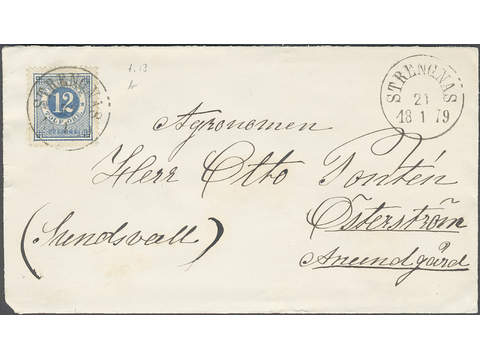 STRENGNÄS
12
TOLF ÖRE
1.13
STRENGNÄS
21
18 1 79
Agronomen
Herr Otto Pontén
Österström
(Sundsvall)
Anundgård